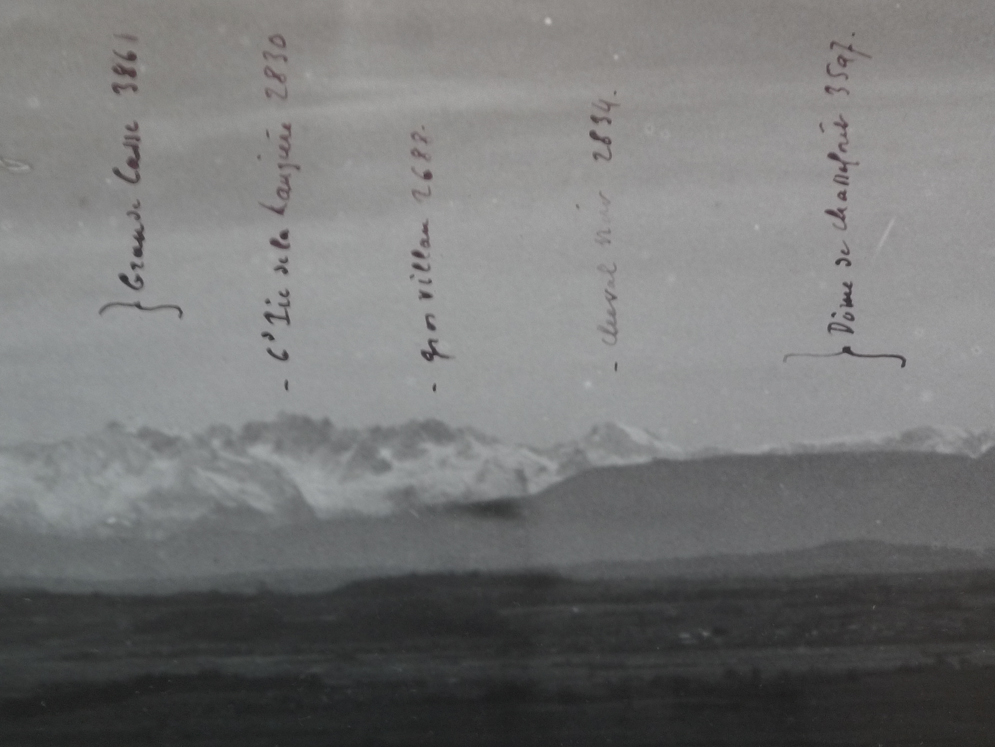 } Grande Casse 3861
- Gd Pic de la Lauzière 2830
- gros villan 2688.
- cheval noir 2834.
} Dôme de chasseforêt 3597.